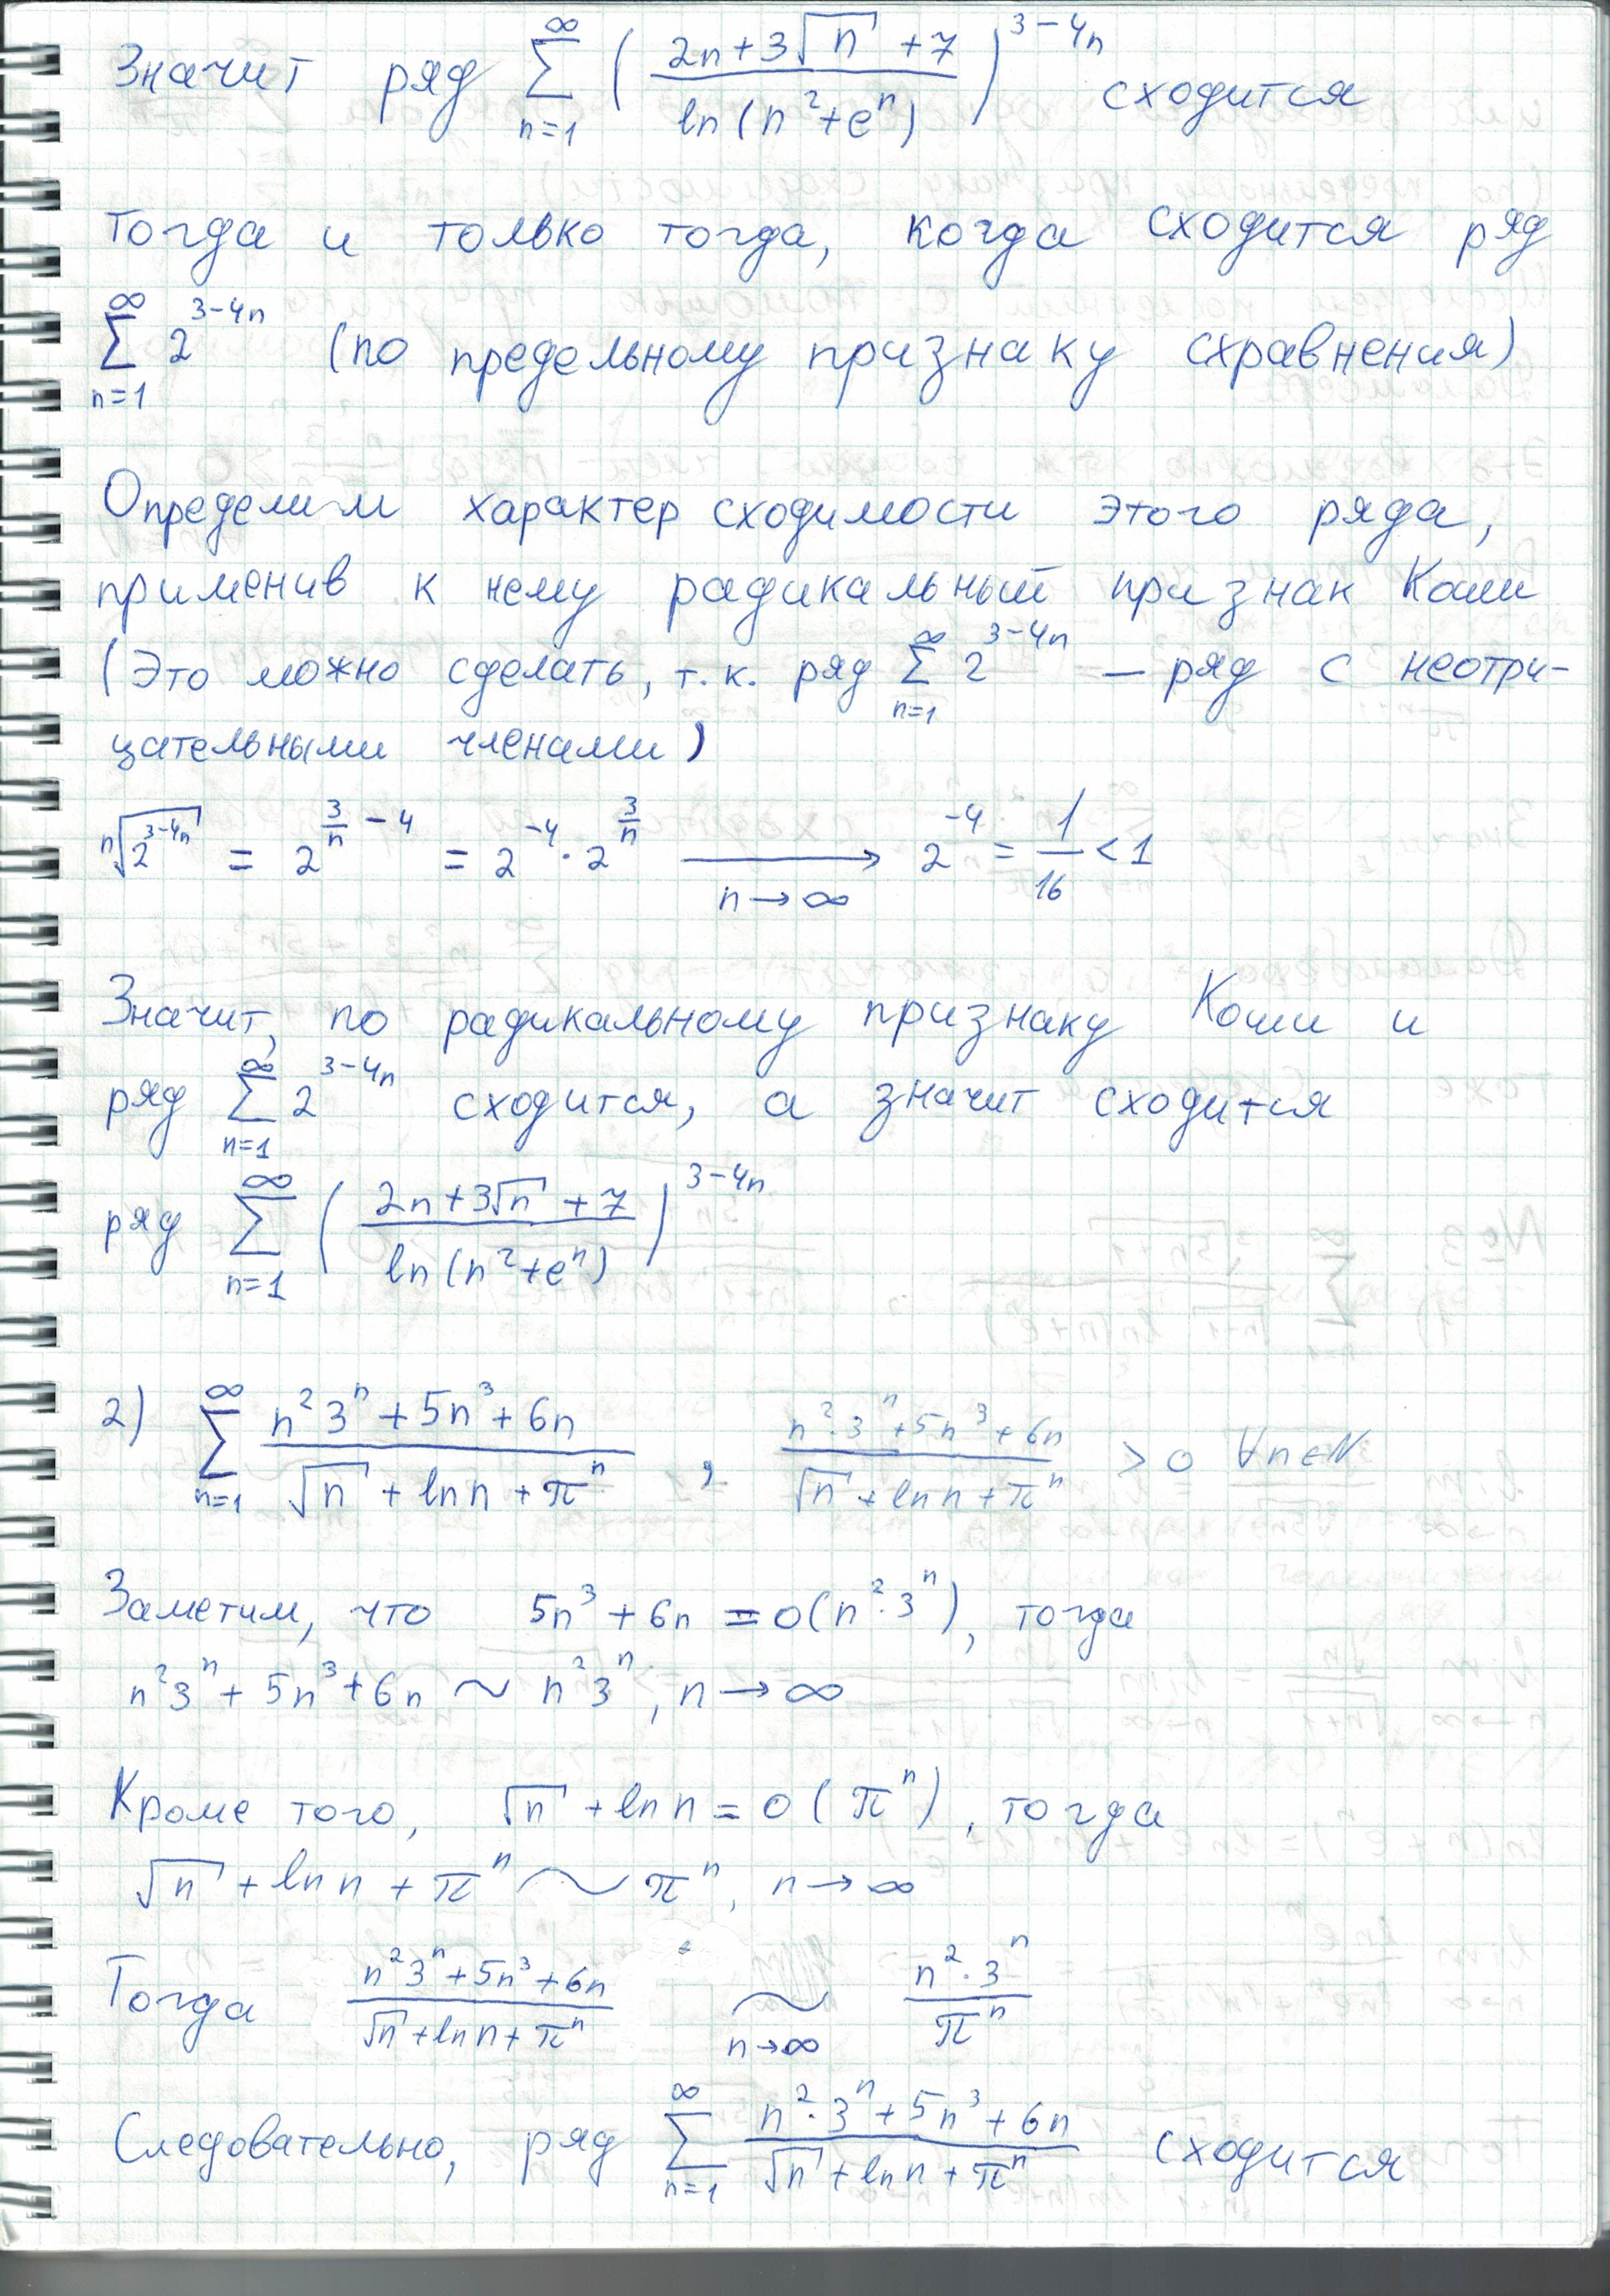 Значит ряд $\sum_{n=1}^{\infty} \left( \frac{2n+3\sqrt{n}+7}{\ln(n^2+e^n)} \right)^{3-4n}$ сходится
тогда и только тогда, когда сходится ряд
$\sum_{n=1}^{\infty} 2^{3-4n}$ (по предельному признаку схравнения)
Определим характер сходимости этого ряда,
применив к нему радикальный признак Коши
(Это можно сделать, т.к. ряд $\sum_{n=1}^{\infty} 2^{3-4n}$ – ряд с неотри-
цательными членами)
$\sqrt[n]{2^{3-4n}} = 2^{\frac{3}{n}-4} = 2^{-4} \cdot 2^{\frac{3}{n}} \xrightarrow[n \to \infty]{} 2^{-4} = \frac{1}{16} < 1$
Значит, по радикальному признаку Коши и
ряд $\sum_{n=1}^{\infty} 2^{3-4n}$ сходится, а значит сходится
ряд $\sum_{n=1}^{\infty} \left( \frac{2n+3\sqrt{n}+7}{\ln(n^2+e^n)} \right)^{3-4n}$
2) $\sum_{n=1}^{\infty} \frac{n^2 3^n+5n^3+6n}{\sqrt{n}+\ln n+\pi^n}$ , $\frac{n^2 \cdot 3^n+5n^3+6n}{\sqrt{n}+\ln n+\pi^n} > 0 \ \forall n \in N$
Заметим, что $5n^3+6n = o(n^2 \cdot 3^n)$, тогда
$n^2 3^n+5n^3+6n \sim n^2 3^n, n \to \infty$
Кроме того, $\sqrt{n}+\ln n = o(\pi^n)$, тогда
$\sqrt{n}+\ln n+\pi^n \sim \pi^n, n \to \infty$
Тогда $\frac{n^2 3^n+5n^3+6n}{\sqrt{n}+\ln n+\pi^n} \underset{n \to \infty}{\sim} \frac{n^2 \cdot 3^n}{\pi^n}$
Следовательно, ряд $\sum_{n=1}^{\infty} \frac{n^2 \cdot 3^n+5n^3+6n}{\sqrt{n}+\ln n+\pi^n}$ сходится